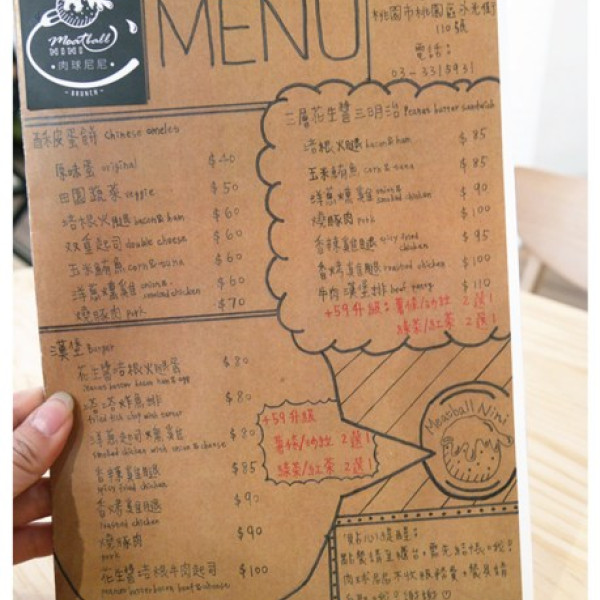 Meatball
NINI
·肉球尼尼·
BRUNCH
MENU
桃園市桃園區永光街
110號
電話:
03-3315931
酥皮蛋餅 Chinese omelet
原味蛋 original $40
田園蔬菜 veggie $50
培根火腿 bacon & ham $60
双重起司 double cheese $60
玉米鮪魚 corn & tuna $60
洋蔥燻雞 onion & smoked chicken $60
燒豚肉 pork $70
三層花生醬三明治 Peanut butter sandwich
培根火腿 bacon & ham $85
玉米鮪魚 corn & tuna $85
洋蔥燻雞 onion & smoked chicken $90
燒豚肉 pork $100
香辣雞腿 spicy fried chicken $95
香烤雞腿 roasted chicken $100
牛肉漢堡排 beef patty $110
+59升級:薯條/沙拉 2選1
綠茶/紅茶 2選1
漢堡 Burger
花生醬培根火腿蛋 $80
Peanut butter bacon ham & egg
塔塔炸魚排 $80
fried fish chop with tartar
洋蔥起司燻雞 $80
smoked chicken with onion & cheese
香辣雞腿 $85
spicy fried chicken
香烤雞腿 $90
roasted chicken
燒豚肉 $90
pork
花生醬培根牛肉起司 $100
peanut butter bacon beef & cheese
+59升級
薯條/沙拉 2選1
綠茶/紅茶 2選1
Meatball Nini
貼心提醒:
點餐請至櫃台,需先結帳
肉球尼尼不收服務費,餐具請